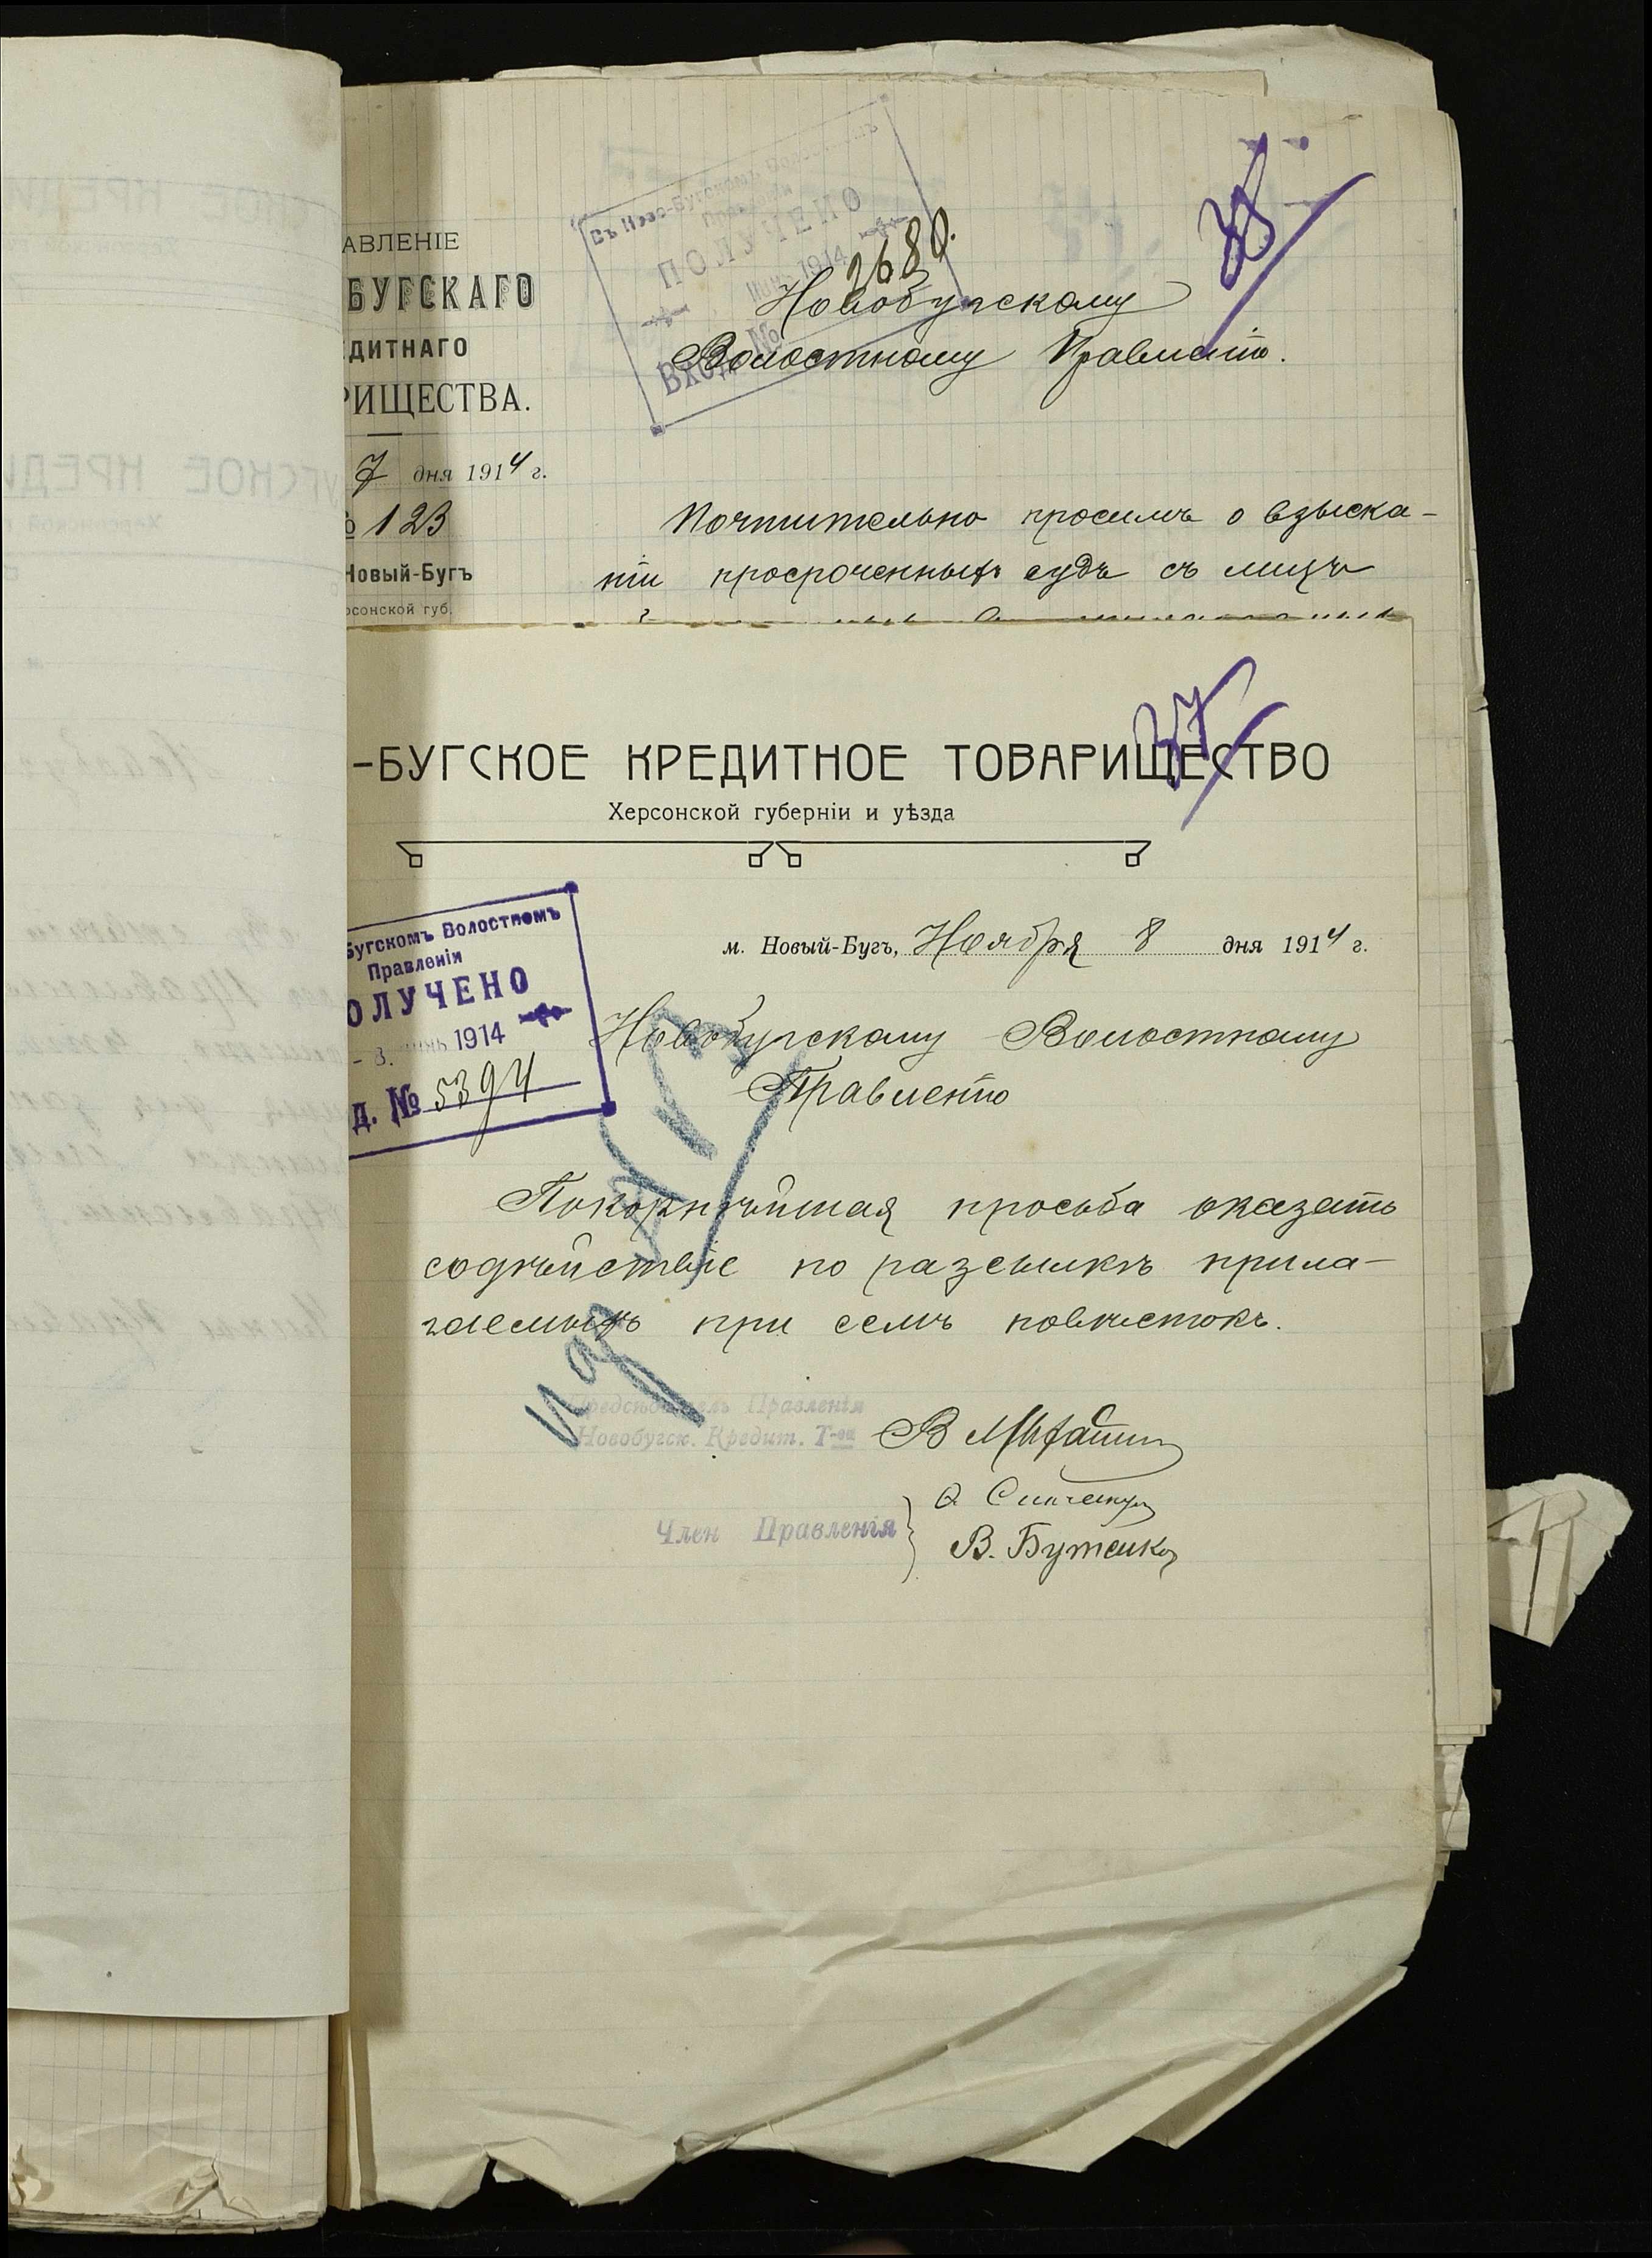 АВЛЕНІЕ
БУГСКАГО
ДИТНАГО
РИЩЕСТВА.
7 дня 1914 г.
№ 123
Новый-Бугъ
рсонской губ.
Въ Ново-Бугскомъ Волостномъ
Правленіи
ПОЛУЧЕНО
1914
Вход. №
2680.
38
Новобугскому
Волостному Правленію.
Почтительно просимъ о взыска-
ніи просроченныхъ судъ съ лицъ
37
-БУГСКОЕ КРЕДИТНОЕ ТОВАРИЩЕСТВО
Херсонской губерніи и уѣзда
Бугскомъ Волостномъ
Правленіи
ОЛУЧЕНО
- 8. 1914
д. № 5394
м. Новый-Бугъ, Ноября 8 дня 1914 г.
Новобугскому Волостному
Правленію
Покорнѣйшая просьба оказать
содѣйствіе по разсылкѣ прила-
гаемыхъ при семъ повѣстокъ.
Предсѣдатель Правленія
Новобугск. Кредит. Т-ва
Член Правленія
В. Бутенко